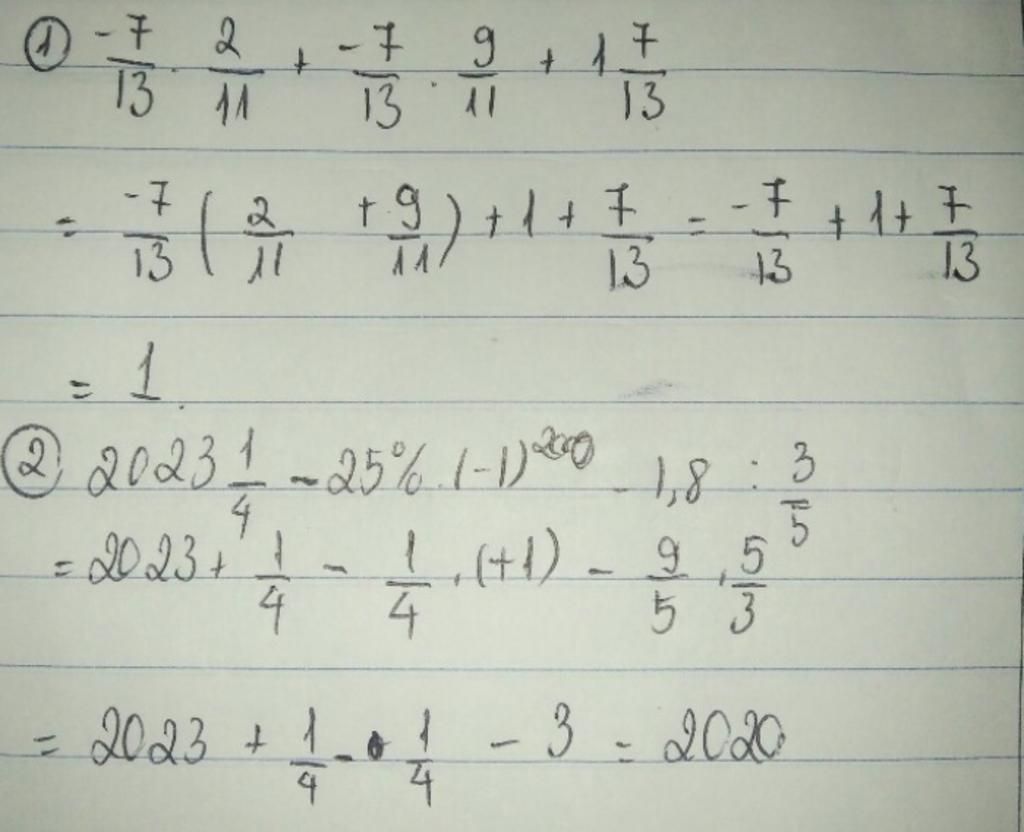 ① -7/13 · 2/11 + -7/13 · 9/11 + 1 7/13
= -7/13 ( 2/11 + 9/11 ) + 1 + 7/13 = -7/13 + 1 + 7/13
= 1.
② 2023 1/4 - 25% · (-1)^2000 - 1,8 : 3/5
= 2023 + 1/4 - 1/4 · (+1) - 9/5 · 5/3
= 2023 + 1/4 - 1/4 - 3 = 2020